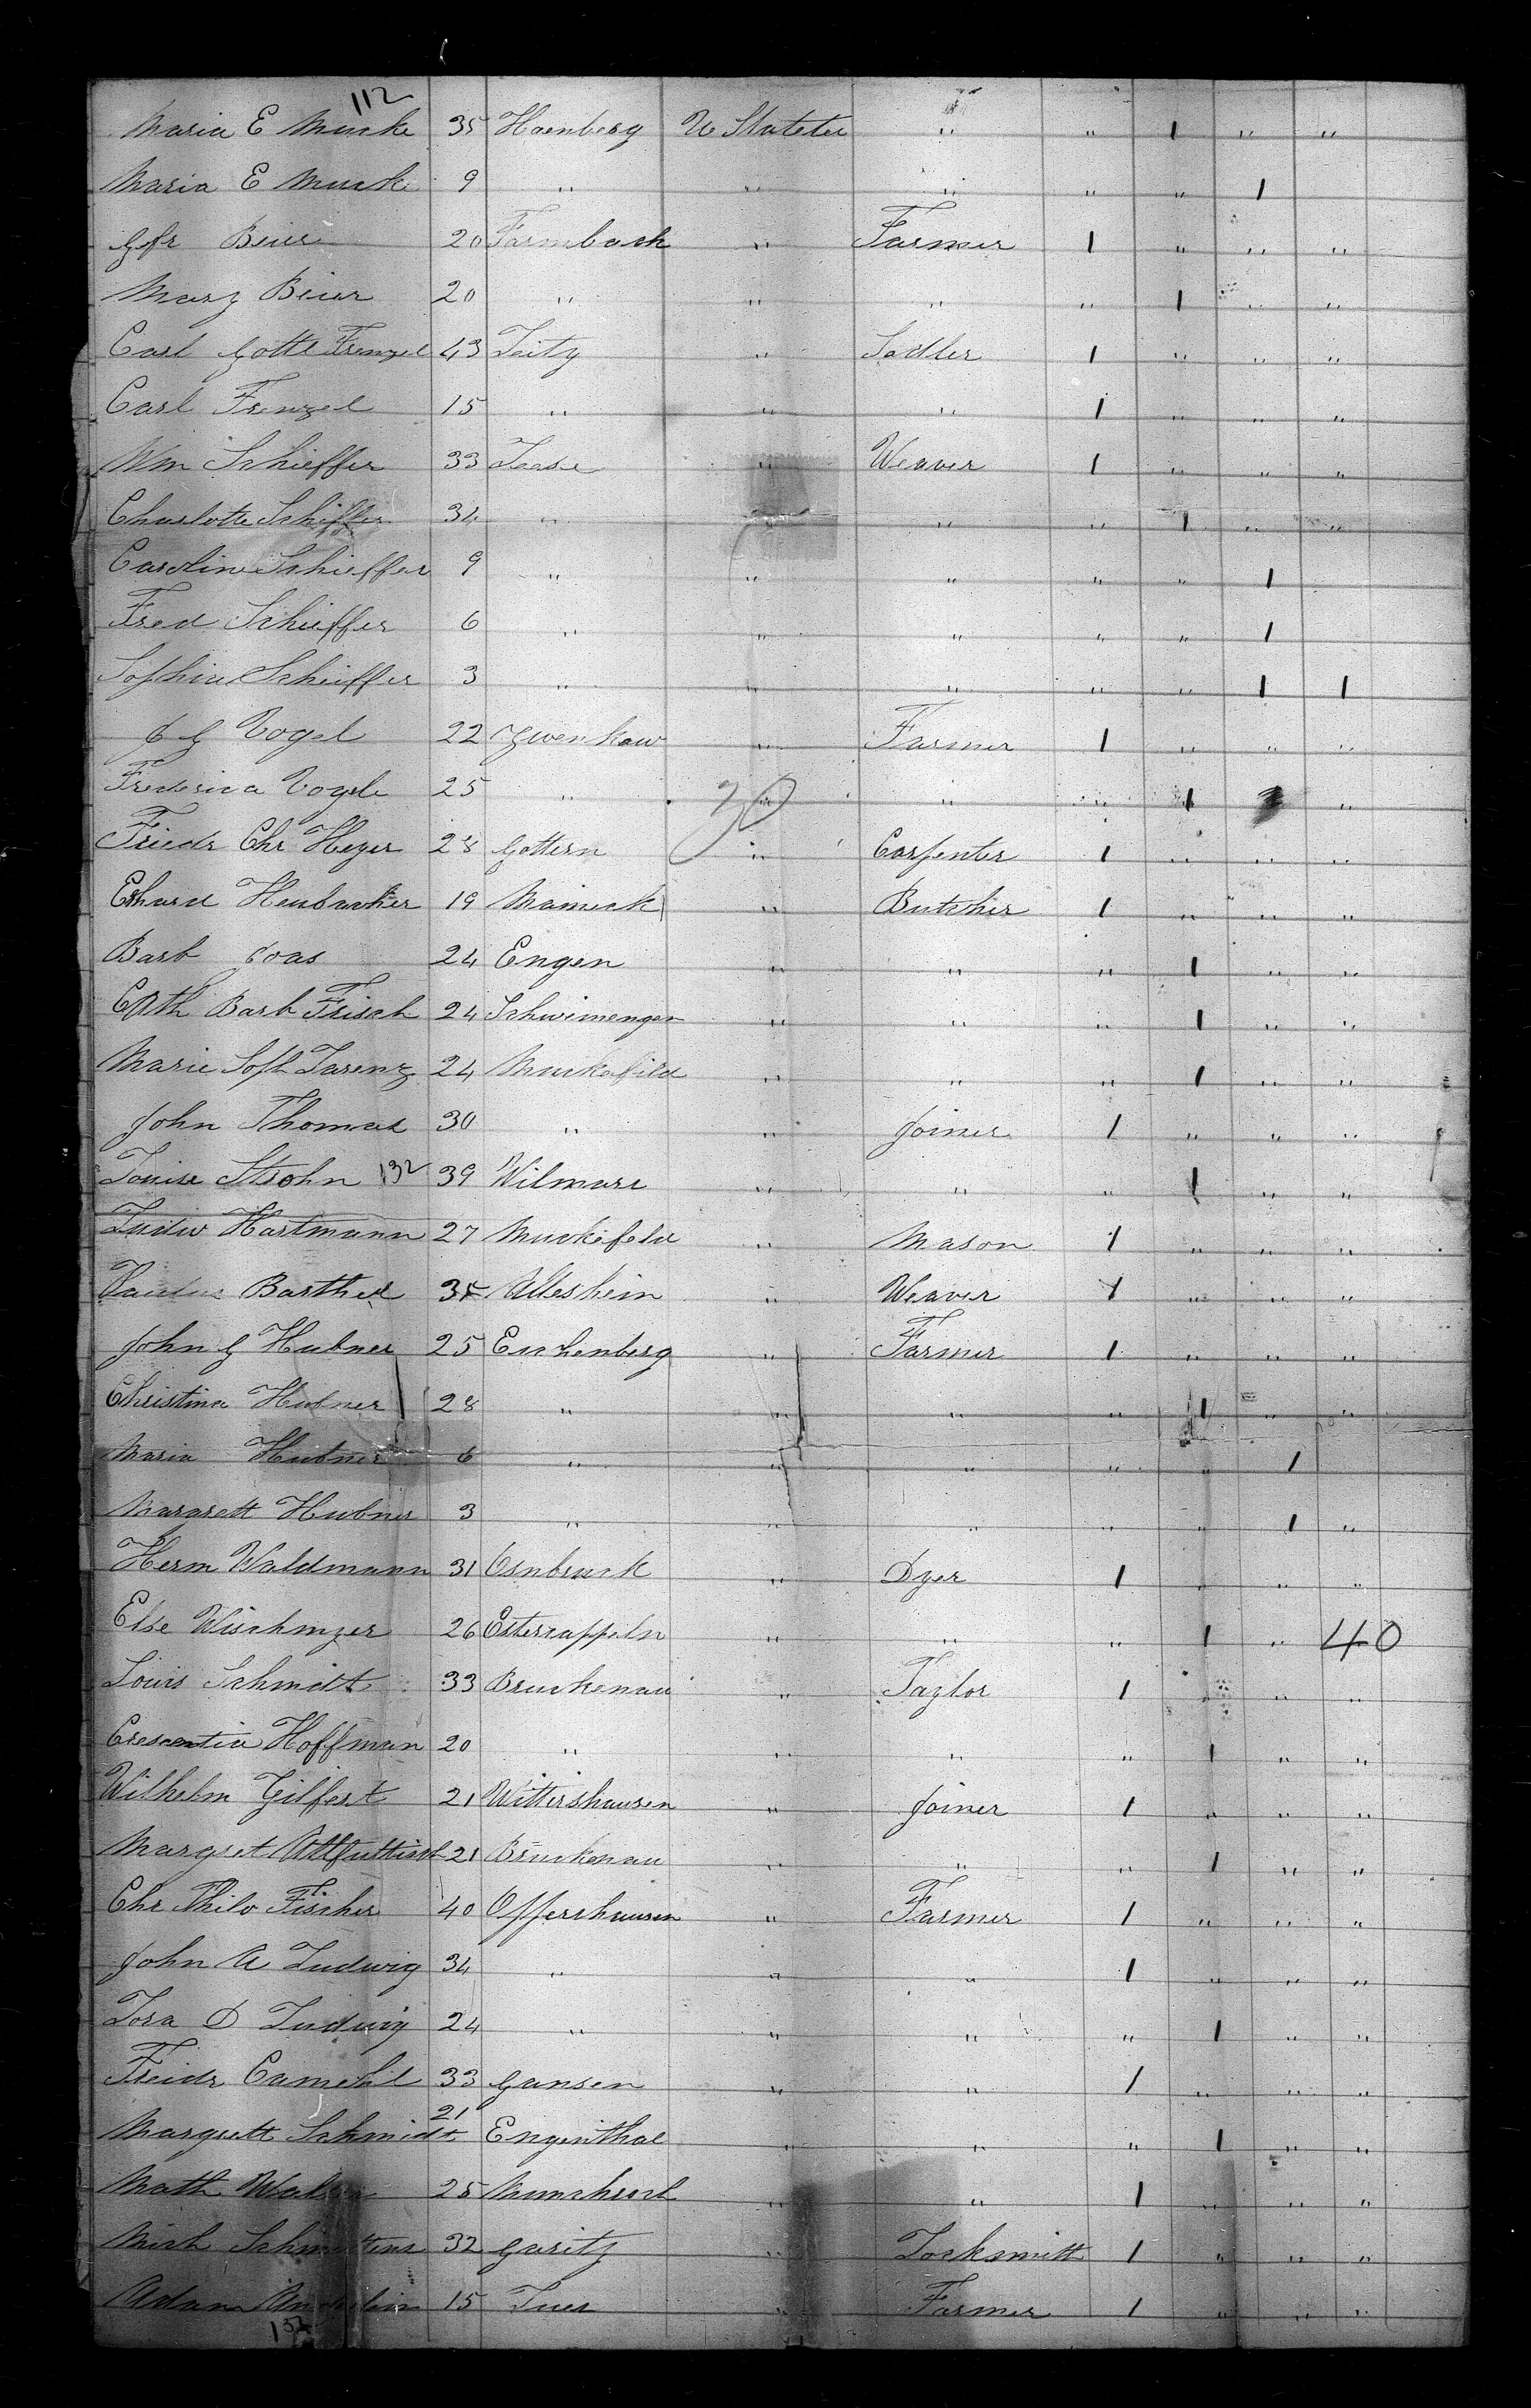 112
Maria E Murke 35 Haenberg U Stateter " " 1 " "
Maria E Murke 9 " " " " " 1
Gfr Beier 20 Farmbach " Farmer 1 " " "
Mary Beier 20 " " " " 1 " "
Carl Gottl Frenzel 43 Zeitz " Sadler 1 " " "
Carl Frenzel 15 " " " 1 " " "
Wm Schieffer 33 Leese " Weaver 1 " " "
Charlotte Schiffer 34 " " " " 1 " "
Caroline Schieffer 9 " " " " " 1
Fred Schieffer 6 " " " " " 1
Sophia Scheiffer 3 " " " " " 1 1
J G Vogel 22 Zwenkaw " Farmer 1 " " "
Frederica Vogele 25 " 30 " " " 1 "
Friedr Chr Heyer 28 Gottern " Carpenter 1 " " "
Erhard Heubacher 19 Maineck " Butcher 1 " " "
Barb Joas 24 Engen " " " 1 " "
Cath Barb Frisch 24 Schwimengen " " " 1 " "
Marie Soph Larenz 24 Muckefild " " " 1 " "
John Thomas 30 " " Joiner 1 " " "
Louise Strohn 132 39 Wilmars " " " 1 " "
Ludw Hartmann 27 Muckefeld " Mason 1 " " "
Barthel 35 Alleshein " Weaver 1 " " "
John G Hubner 25 Euchenberg " Farmer 1 " " "
Christina Hubner 28 " " " " 1 " "
Maria Hubner 6 " " " " " 1
Margrett Hubner 3 " " " " " 1 "
Herm Waldmann 31 Osnbruck " Dyer 1 " " "
Else Wischmyer 26 Ostercappeln " " " 1 " 40
Louis Schmidt 33 Bruckenau " Taylor 1 " " "
Crescentia Hoffman 20 " " " " 1 " "
Wilhelm Gilfert 21 Wittershausen " Joiner 1 " " "
Margret 21 Bruckenau " " " 1 " "
Chr Thilo Fischer 40 Offershausen " Farmer 1 " " "
John A Ludwig 34 " " " 1 " " "
Lora D Ludwig 24 " " " " 1 " "
Freidr Camehl 33 Gansen " " 1 " " "
Margrett Schmidt 21 Engenthal " " " 1 " "
Math 25 Munchroth " " 1 " " "
Mich 32 Garitz " Locksmitt 1 " " "
Adam 15 Luer Farmer 1 " " "
132